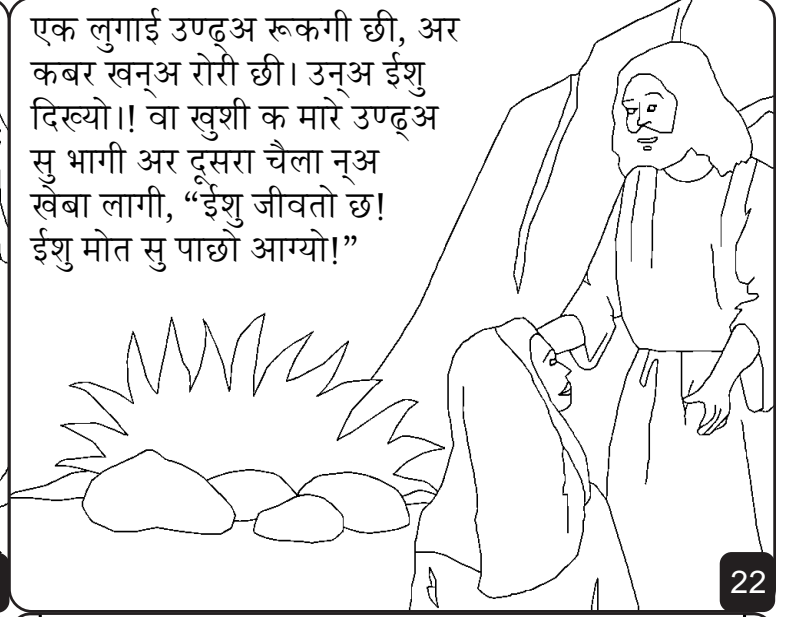 एक लुगाई उण्ढ्अ रूकगी छी, अर
कबर खन्अ रोरी छी। उन्अ ईशु
दिख्यो।! वा खुशी क मारे उण्ढ्अ
सु भागी अर दूसरा चैला न्अ
खेबा लागी, “ईशु जीवतो छ!
ईशु मोत सु पाछो आग्यो!”
22